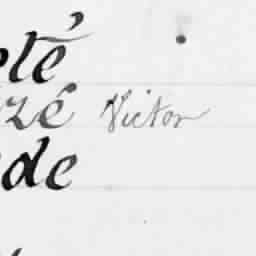 eté
zé Victor
de